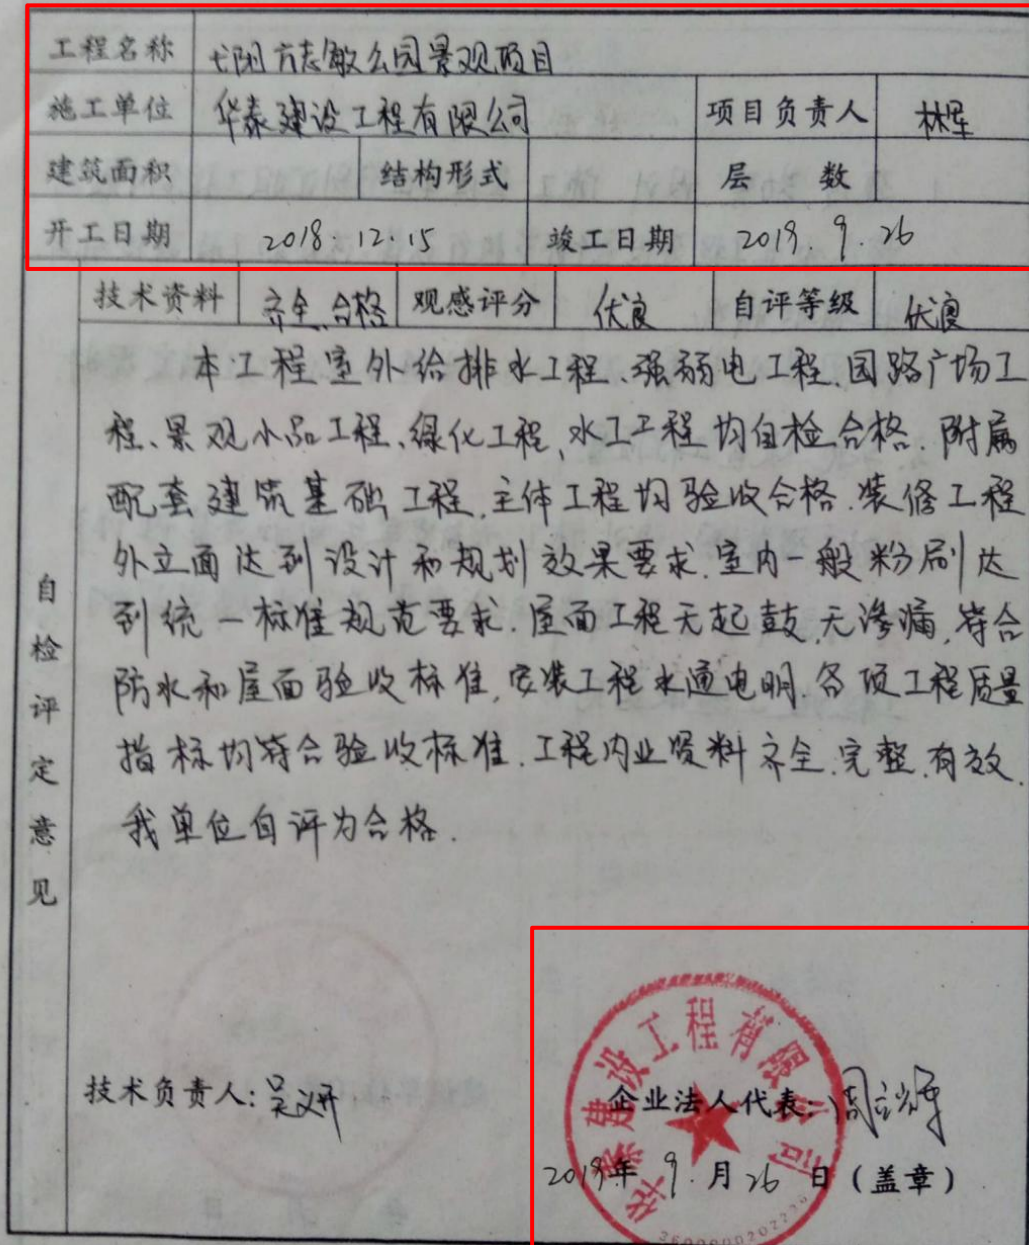 工程名称 弋阳方志敏公园景观项目
施工单位 华泰建设工程有限公司 项目负责人 林军
建筑面积 结构形式 层 数
开工日期 2018.12.15 竣工日期 2019.9.26
技术资料 齐全、合格 观感评分 优良 自评等级 优良
自检评定意见
本工程室外给排水工程、强弱电工程、园路广场工
程、景观小品工程、绿化工程、水工工程均自检合格.附属
配套建筑基础工程.主体工程均验收合格.装修工程
外立面达到设计和规划效果要求.室内一般粉刷达
到统一标准规范要求.屋面工程无起鼓.无渗漏.符合
防水和屋面验收标准.安装工程水通电明.各项工程质量
指标均符合验收标准.工程内业资料齐全.完整.有效.
我单位自评为合格.
华泰建设工程有限公司
技术负责人: 企业法人代表:
2019年 9 月 26 日(盖章)